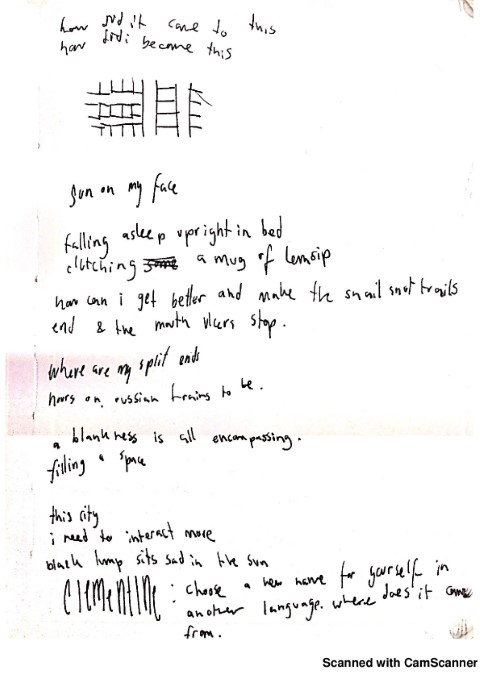 how did it come to this
how did i become this
Sun on my face
falling asleep upright in bed
clutching some a mug of lemsip
how can i get better and make the snail snot trails
end & the mouth ulcers stop.
where are my split ends
hours on russian trains to be.
a blankness is all encompassing.
filling a space
this city
i need to interact more
black lump sits sad in the sun
CLEMENTINE: choose a new name for yourself in
another language. where does it come
from.
Scanned with CamScanner